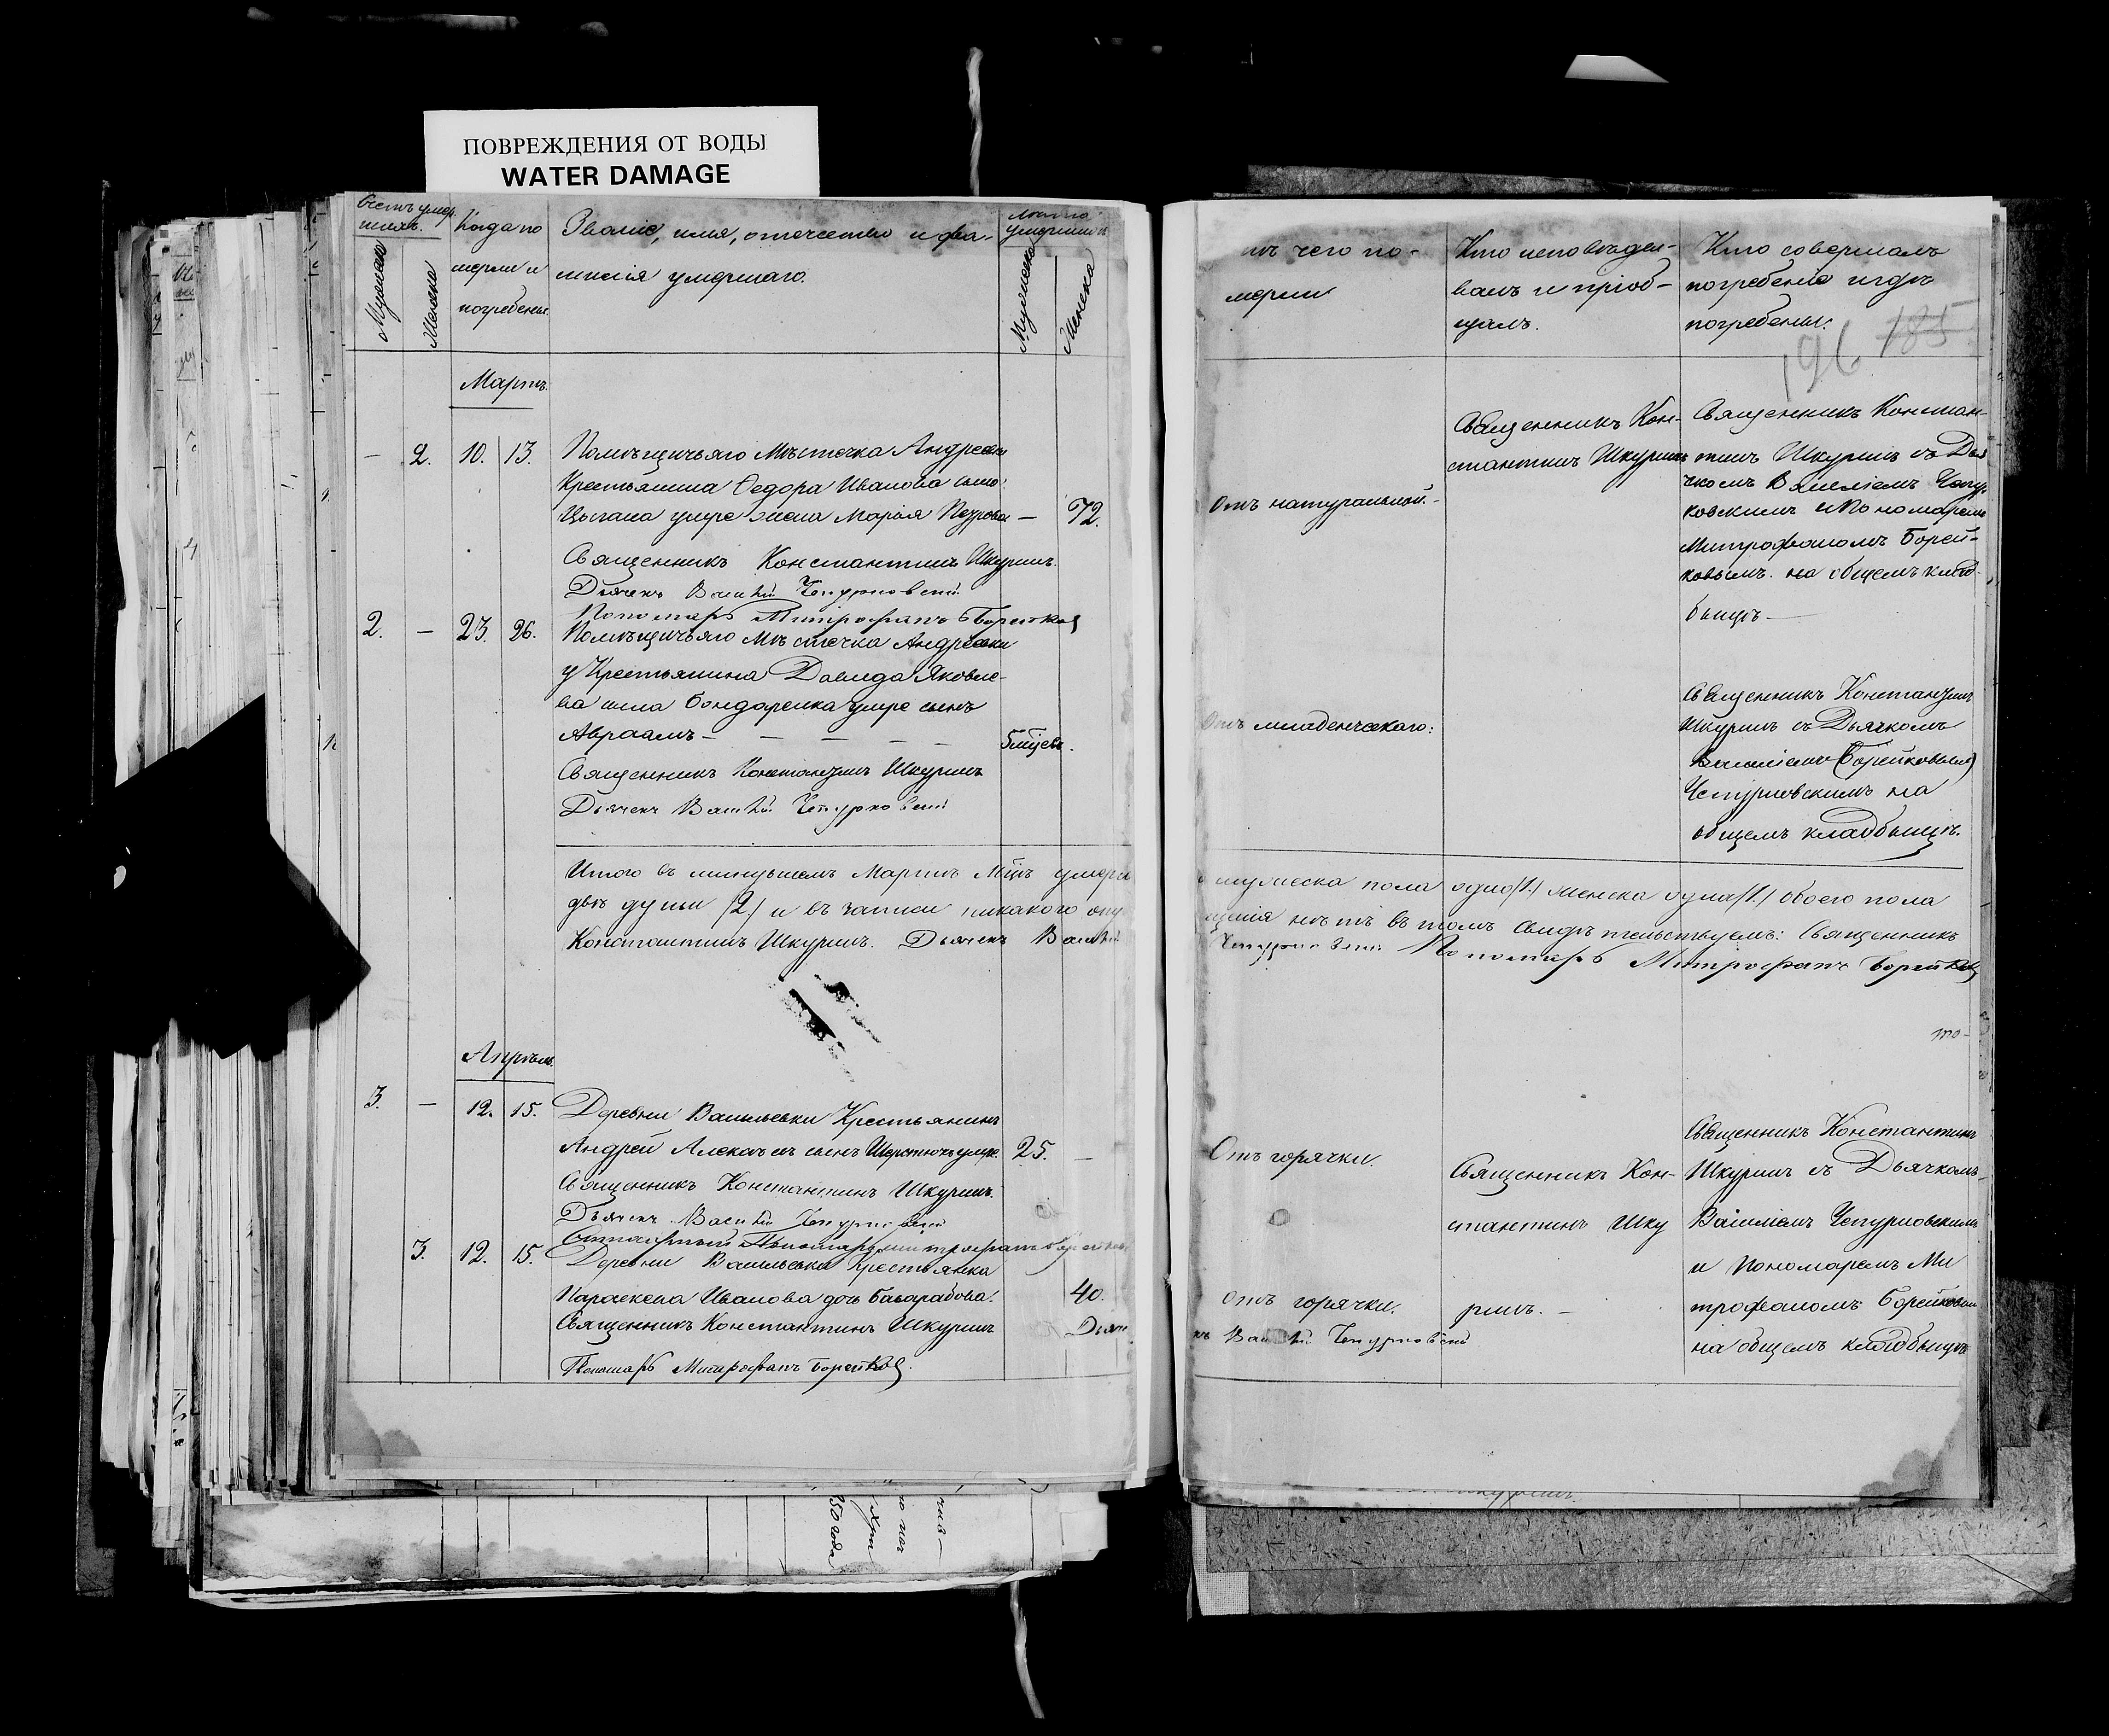 ПОВРЕЖДЕНИЯ ОТ ВОДЫ
WATER DAMAGE
Счетъ умер-
шихъ.
Мужеска
Женска
Когда по
мерли и
погребены.
Званіе, имя, отечество и фа-
милія умершаго.
Лѣта
умершихъ
Мужеска
Женска
Мартъ.
— 2. 10. 13. Помѣщичьяго Мѣстечка Андреевки
Крестьянина Ѳедора Иванова сына
Цыгана умре жена Марья Петрова — 72.
Священникъ Константинъ Шкуринъ.
Дьячекъ Василій Чепурновскій
Пономарь Митрофанъ Борейков
2. — 23. 26. Помѣщичьяго Мѣстечка Андреевки
у Крестьянина Давида Яковле-
ва сына Бондаренка умре сынъ
Авраамъ — — — — — 6 мцев.
Священникъ Константинъ Шкуринъ
Дьячекъ Василій Чепурновскій
Итого въ минувшемъ Мартѣ Мцѣ умерш
двѣ души (2.) и въ записи никакого опу
Константинъ Шкуринъ. Дьячекъ Василій
Апрѣль.
3. — 12. 15. Деревни Васильевки Крестьянинъ
Андрей Алексѣевъ сынъ умре. 25. —
Священникъ Константинъ Шкуринъ.
Дьячекъ Василій Чепурновскій
3. 12. 15. Деревни Васильевки Крестьянка
Параскева Иванова дочь 40.
Священникъ Константинъ Шкуринъ Дьяч
Пономарь Митрофанъ Борейков.
тъ чего по-
мерли
Кто исповѣды-
валъ и пріоб-
щалъ.
Кто совершалъ
погребеніе и гдѣ
погребены.
196 185
Отъ натуральной.-
Священникъ Кон-
стантинъ Шкуринъ
Священникъ Констан-
тинъ Шкуринъ съ Дья
чкомъ Василіемъ Чепур-
новскимъ и Пономаремъ
Митрофаномъ Борей-
ковымъ. на общемъ клад-
бищѣ —
Отъ младенческаго:
Священникъ Константинъ
Шкуринъ съ Дьячкомъ
Василіемъ (Борейковымъ)
Чепурновскимъ на
общемъ кладбищѣ.
мужеска пола одно (1.) женска одна (1.) обоего пола
щенія нѣтъ въ томъ свидѣтельствуемъ: Священникъ
Чепурновскій Пономарь Митрофанъ Борейков
то-
Отъ горячки.
Священникъ Кон-
стантинъ Шку
ринъ. —
Священникъ Константинъ
Шкуринъ съ Дьячкомъ
Василіемъ Чепурновскимъ
и Пономаремъ Ми
трофаномъ Борейковым
на общемъ кладбищѣ
Отъ горячки.
къ Василій Чепурновскій